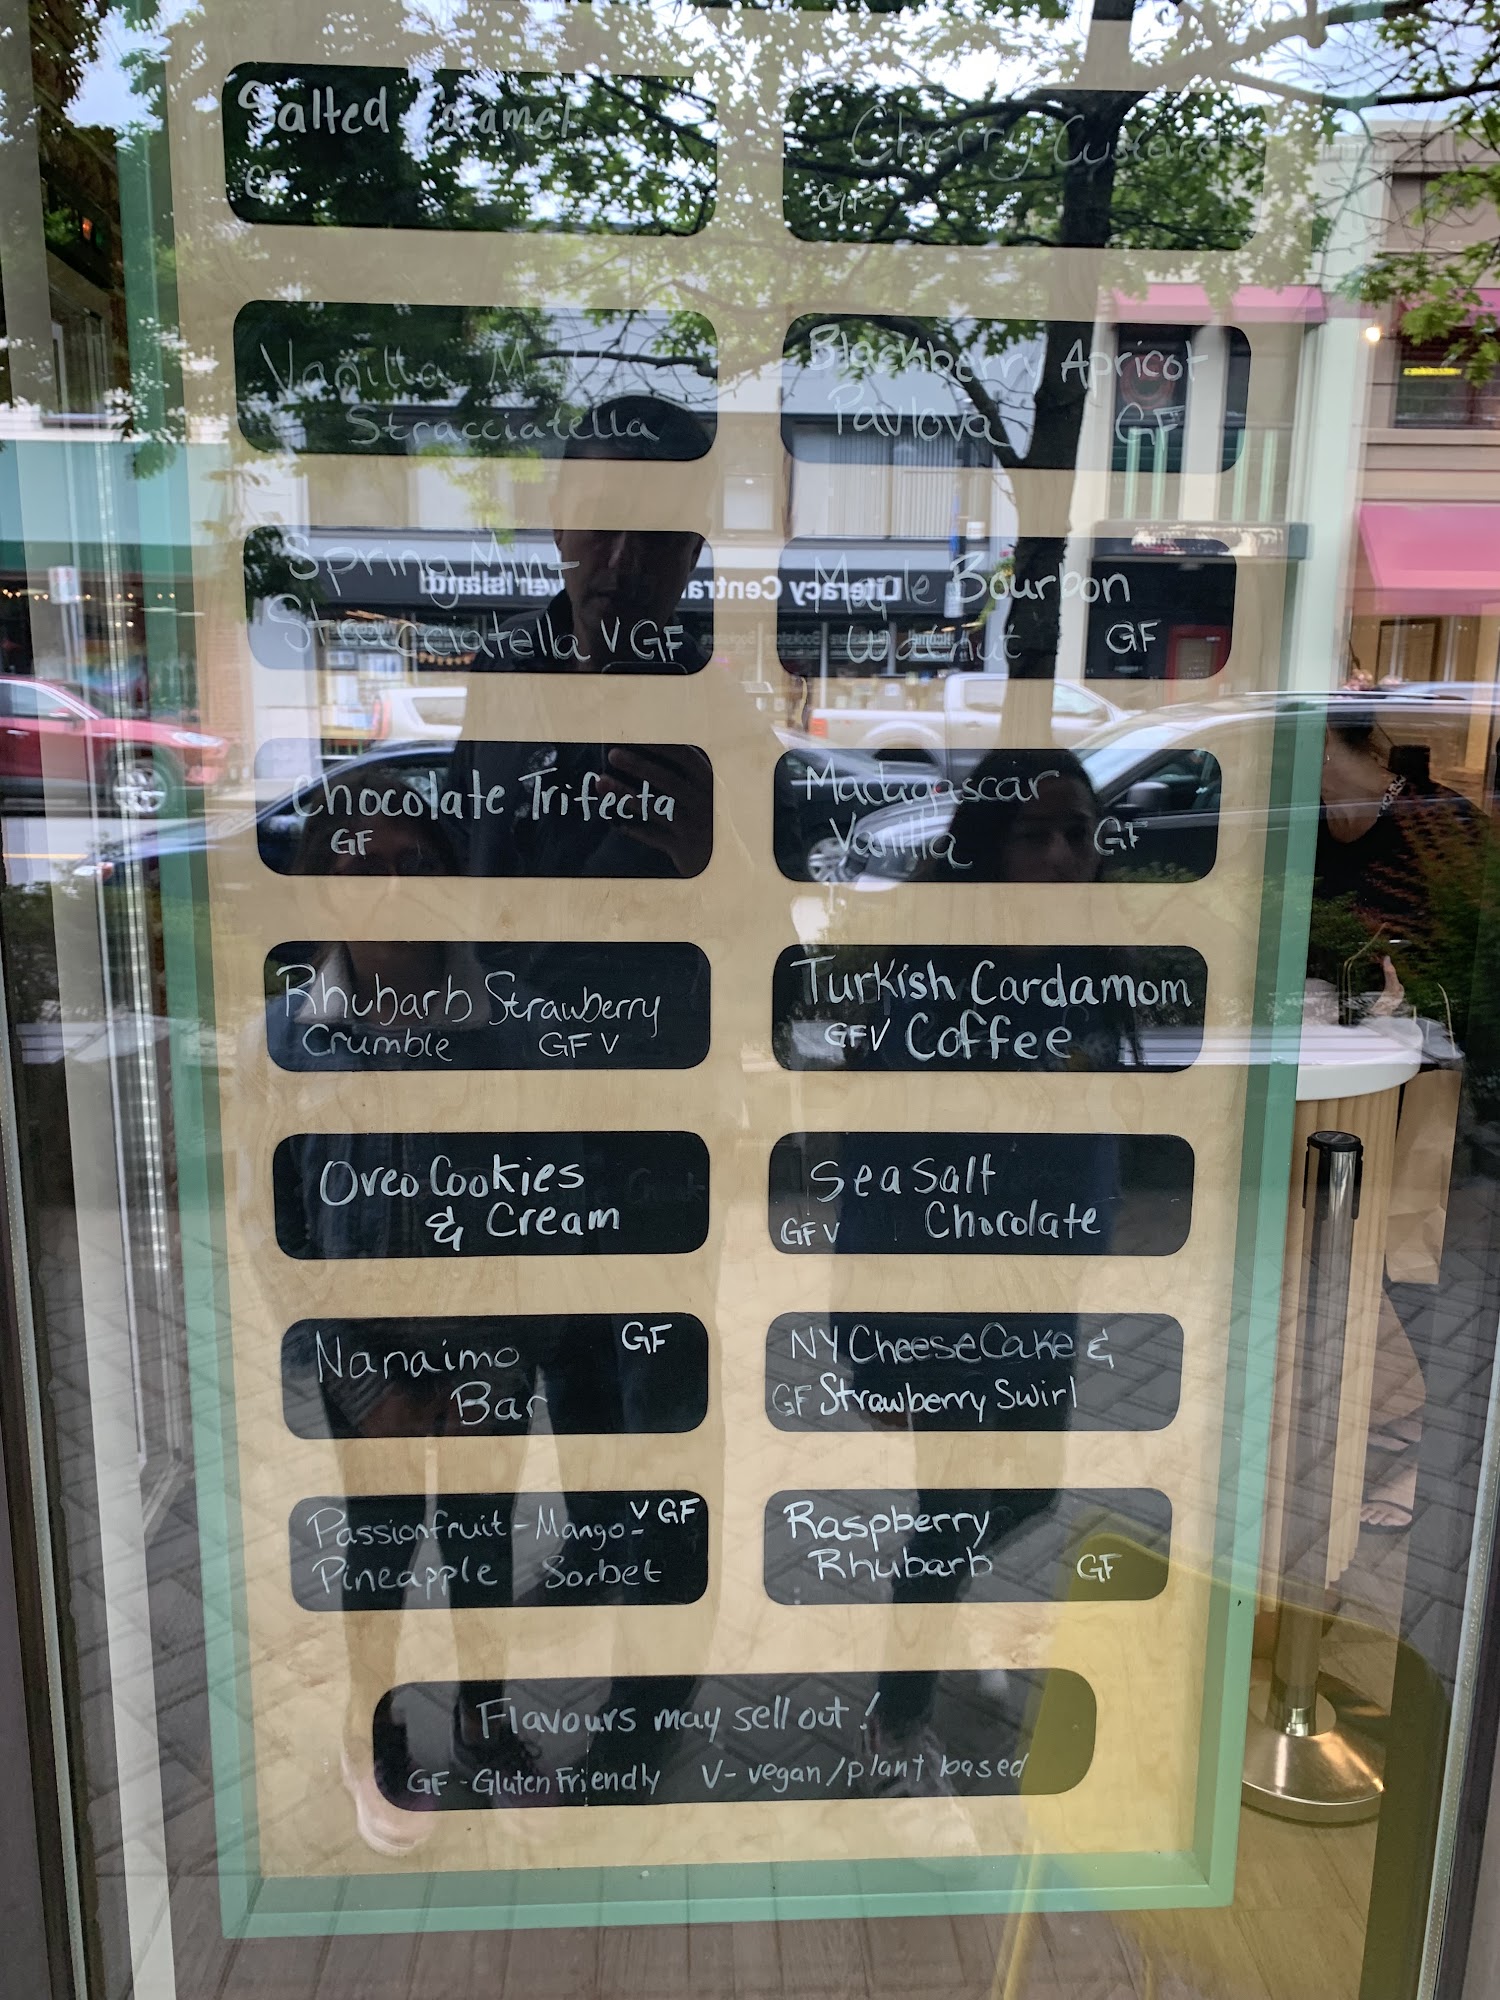 Salted Caramel
GF
Cherry Custard
GF
Vanilla Malt
Stracciatella
Blackberry Apricot
Pavlova GF
Spring Mint
Stracciatella V GF
Maple Bourbon
Walnut GF
Chocolate Trifecta
GF
Madagascar
Vanilla GF
Rhubarb Strawberry
Crumble GF V
Turkish Cardamom
GFV Coffee
Oreo Cookies
& Cream
Sea Salt
GF V Chocolate
Nanaimo GF
Bar
NY CheeseCake &
GF Strawberry Swirl
Passionfruit-Mango- V GF
Pineapple Sorbet
Raspberry
Rhubarb GF
Flavours may sell out!
GF - Gluten Friendly V - vegan/plant based
Literacy Central